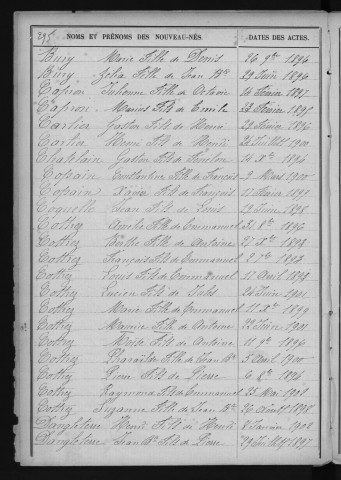 295
NOMS ET PRÉNOMS DES NOUVEAU-NÉS. DATES DES ACTES.
Bury Marie Fille de Denis 26 9bre 1896
Bury Zélia Fille de Jean Bte 29 Juin 1896
Capron Julienne Fille de 14 Février 1897
Capron Marius Fils de Emile 22 Février 1898
Carlier Gaston Fils de Février 1896
Carlier Henri Fils de Juillet 1900
Châtelain Gaston Fils de 14 Xbre 1896
Copain Fille de François 2 Mars 1900
Copain Xavier Fils de François 17 Mars 1898
Coquelle Jean Fils de Louis Juin 1898
Cottrez Amélie Fille de Emmanuel 8bre 1896
Cottrez Berthe Fille de Antoine 27 Xbre 1898
Cottrez François Fils de Emmanuel 2 1897
Cottrez Louis Fils de Emmanuel 17 Avril 1898
Cottrez Lucien Fils de Jules 24 Juin 1901
Cottrez Marie Fille de Emmanuel 11 1899
Cottrez Maurice Fils de Antoine Juin 1901
Cottrez Moïse Fils de Antoine 11 9bre 1896
Cottrez Fille de Jean Bte 5 Avril 1900
Cottrez Pierre Fils de Pierre 6 8bre 1896
Cottrez Raymond Fils de Emmanuel 25 Mai 1902
Cottrez Suzanne Fille de Jean Bte 26 Août 1898
Dangleterre Henri Fils de Henri 8 Janvier 1902
Dangleterre Jean Bte Fils de Pierre 29 Juillet 1897